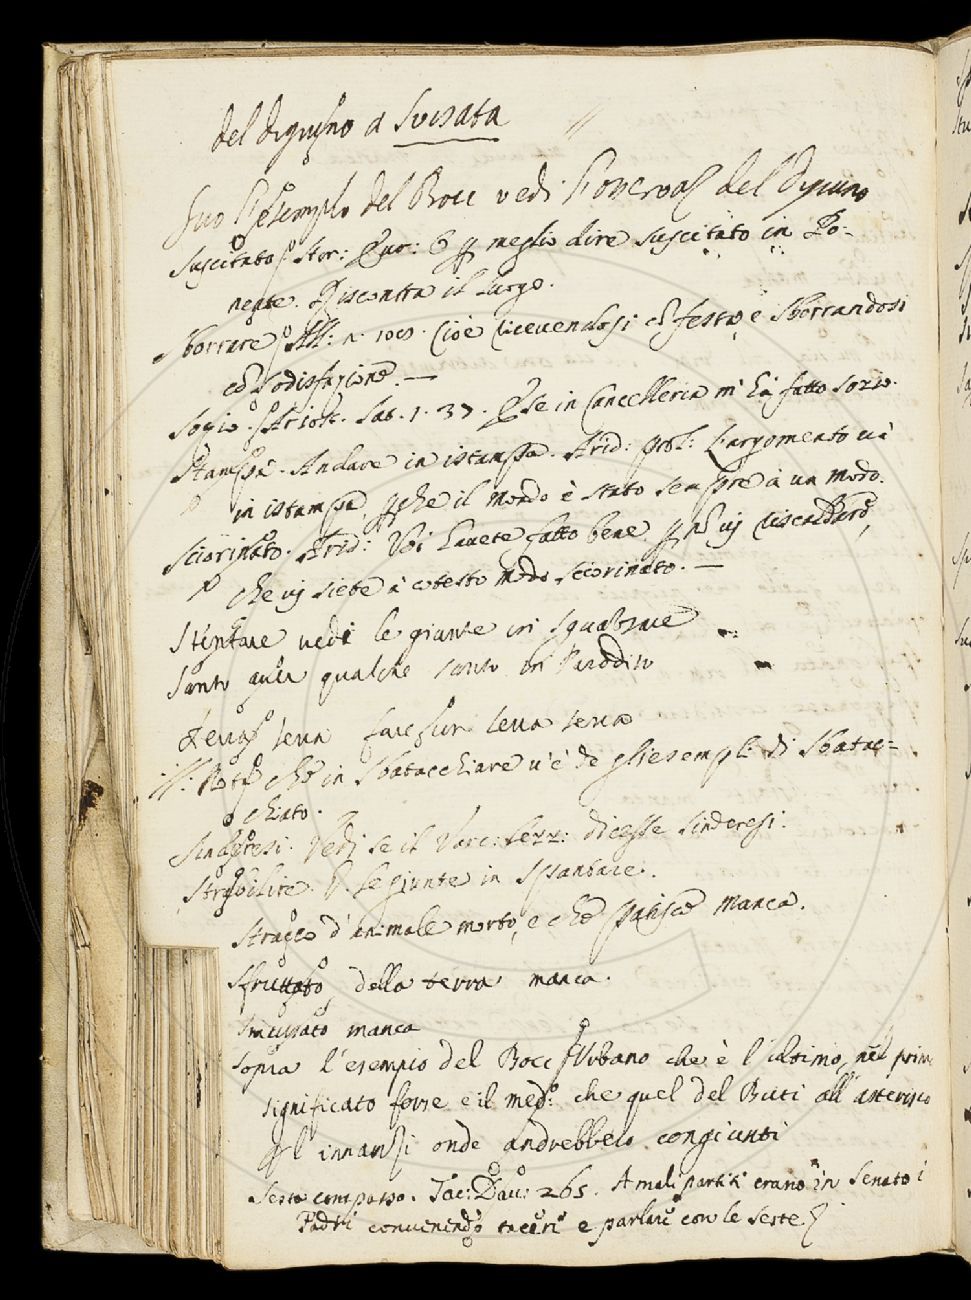 del digiuno a Svisata
Suo l'esemplo del Bocc vedi del Digiuno
Suscitato Stor: Eur: 6 meglio dire suscitato in Po-
nente. Riscontra il luogo.
Sborrare All: n. cioè ricevendosi cō festa e sborrandosi
cō sodisfazione. —
Sozio. Ariost. Sat. 1. 37. E se in Cancelleria m' hà fatto sozio.
Stampa. Andare in istampa. Arid: prol: L'argomento và
in istampa, che il Mondo è stato sempre à un modo.
Sciorinato. Arid: Voi havete fatto bene riscaldarᵒ,
che vi siete à cotesto modo sciorinato. —
Stentare vedi le giunte in
Santo qualche santo in Paradiso
Serra serra far serra serra
che in Sbatacchiare v'è de gli esempli di Sbatac-
chiato.
Sinderesi. Vedi se il Varc: Lezz: dicesse sinderesi.
V. le giunte in
Stracco d'animale morto, e che manca.
Sfruttato della terra manca.
manca
Sopra l'esempio del Bocc Urbano che è l'ultimo nel prim
significato forse è il medᵒ: che quel del Buti all'asterisco
innanzi onde andrebbero congiunti
Seste compasso. Tac: Dav: 265. A mali partiti erano in Senato i
Padri convenendo tacere e parlare con le seste